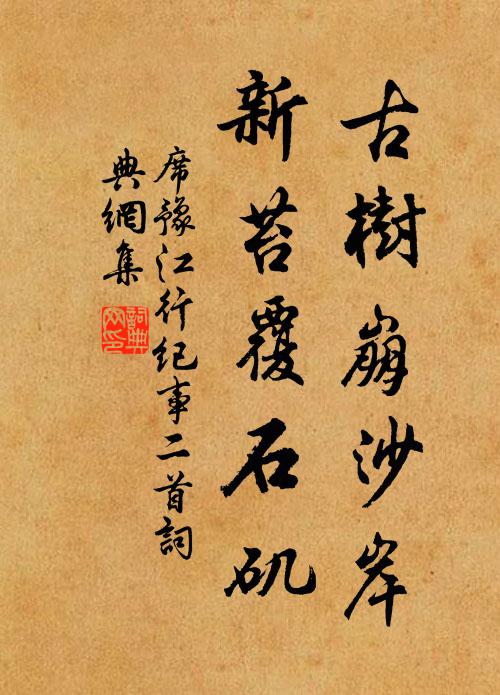 古樹崩沙岸
新苔覆石矶
席豫江行纪事二首詞
典網集
詞典网印